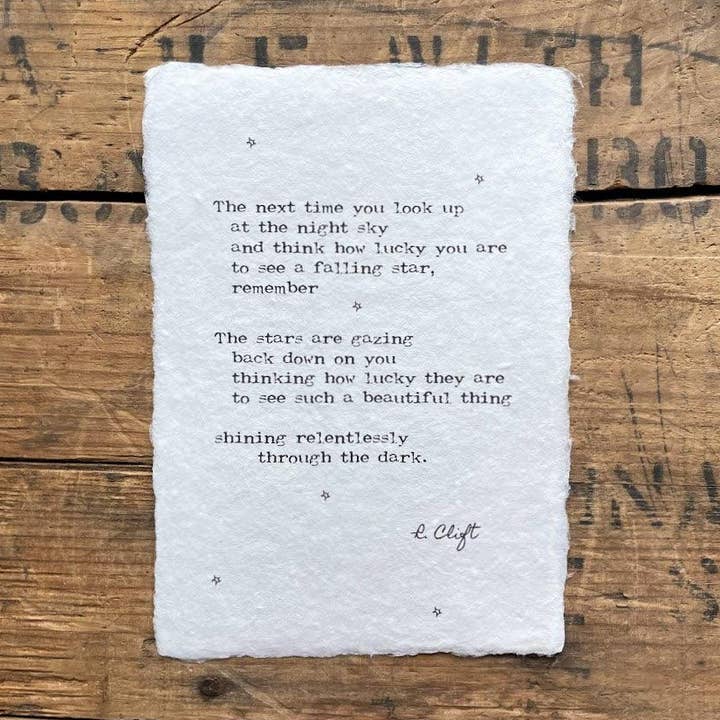 WITH
130
The next time you look up
at the night sky
and think how lucky you are
to see a falling star,
remember
The stars are gazing
back down on you
thinking how lucky they are
to see such a beautiful thing
shining relentlessly
through the dark.
R. Clift